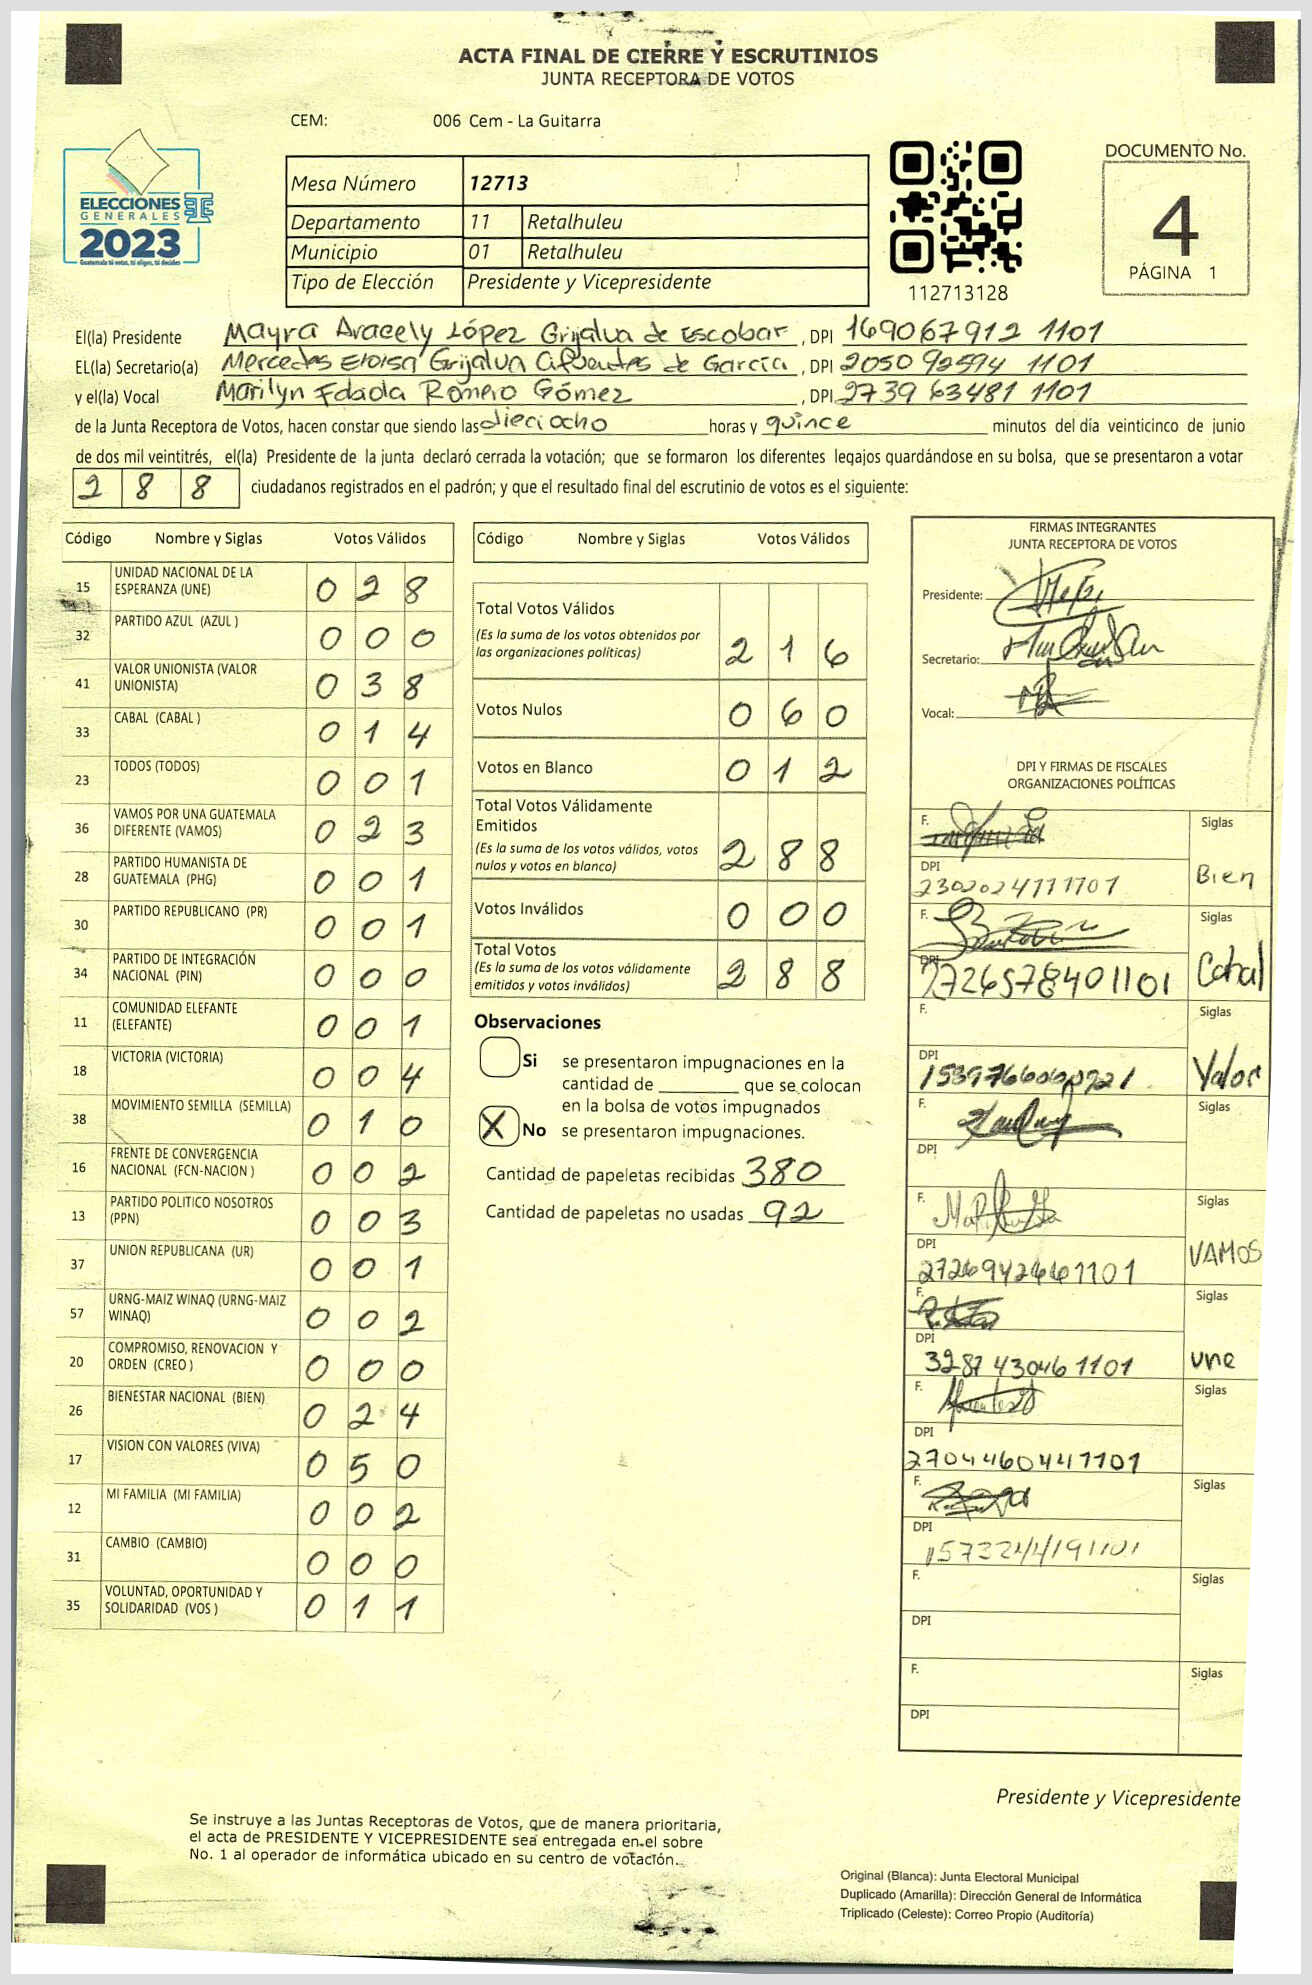 ACTA FINAL DE CIERRE Y ESCRUTINIOS
JUNTA RECEPTORA DE VOTOS
CEM: 006 Cem - La Guitarra
ELECCIONES
GENERALES
2023
Guatemala tú votas, tú eliges, tú decides
Mesa Número 12713
Departamento 11 Retalhuleu
Municipio 01 Retalhuleu
Tipo de Elección Presidente y Vicepresidente
112713128
DOCUMENTO No.
4
PÁGINA 1
El(la) Presidente Mayra Aracely López Grijalva de Escobar, DPI 169067912 1101
EL(la) Secretario(a) Mercedes Eloisa Grijalva Cifuentes de García, DPI 2050 92594 1101
y el(la) Vocal Marilyn Romero Gómez, DPI 2739 63481 1101
de la Junta Receptora de Votos, hacen constar que siendo las dieciocho horas y quince minutos del día veinticinco de junio
de dos mil veintitrés, el(la) Presidente de la junta declaró cerrada la votación; que se formaron los diferentes legajos guardándose en su bolsa, que se presentaron a votar
2 8 8 ciudadanos registrados en el padrón; y que el resultado final del escrutinio de votos es el siguiente:
Código Nombre y Siglas Votos Válidos
15 UNIDAD NACIONAL DE LA ESPERANZA (UNE) 0 2 8
32 PARTIDO AZUL (AZUL ) 0 0 0
41 VALOR UNIONISTA (VALOR UNIONISTA) 0 3 8
33 CABAL (CABAL ) 0 1 4
23 TODOS (TODOS) 0 0 1
36 VAMOS POR UNA GUATEMALA DIFERENTE (VAMOS) 0 2 3
28 PARTIDO HUMANISTA DE GUATEMALA (PHG) 0 0 1
30 PARTIDO REPUBLICANO (PR) 0 0 1
34 PARTIDO DE INTEGRACIÓN NACIONAL (PIN) 0 0 0
11 COMUNIDAD ELEFANTE (ELEFANTE) 0 0 1
18 VICTORIA (VICTORIA) 0 0 4
38 MOVIMIENTO SEMILLA (SEMILLA) 0 1 0
16 FRENTE DE CONVERGENCIA NACIONAL (FCN-NACION ) 0 0 2
13 PARTIDO POLITICO NOSOTROS (PPN) 0 0 3
37 UNION REPUBLICANA (UR) 0 0 1
57 URNG-MAIZ WINAQ (URNG-MAIZ WINAQ) 0 0 2
20 COMPROMISO, RENOVACION Y ORDEN (CREO ) 0 0 0
26 BIENESTAR NACIONAL (BIEN) 0 2 4
17 VISION CON VALORES (VIVA) 0 5 0
12 MI FAMILIA (MI FAMILIA) 0 0 2
31 CAMBIO (CAMBIO) 0 0 0
35 VOLUNTAD, OPORTUNIDAD Y SOLIDARIDAD (VOS ) 0 1 1
Código Nombre y Siglas Votos Válidos
Total Votos Válidos
(Es la suma de los votos obtenidos por
las organizaciones políticas) 2 1 6
Votos Nulos 0 6 0
Votos en Blanco 0 1 2
Total Votos Válidamente
Emitidos
(Es la suma de los votos válidos, votos
nulos y votos en blanco) 2 8 8
Votos Inválidos 0 0 0
Total Votos
(Es la suma de los votos válidamente
emitidos y votos inválidos) 2 8 8
Observaciones
Si se presentaron impugnaciones en la
cantidad de ________ que se colocan
en la bolsa de votos impugnados
X No se presentaron impugnaciones.
Cantidad de papeletas recibidas 380
Cantidad de papeletas no usadas 92
FIRMAS INTEGRANTES
JUNTA RECEPTORA DE VOTOS
Presidente:
Secretario:
Vocal:
DPI Y FIRMAS DE FISCALES
ORGANIZACIONES POLÍTICAS
F. Siglas
DPI Bien
F. Siglas
DPI 2726578401101 Cabal
F. Siglas
DPI Valor
F. Siglas
DPI
F. Siglas
DPI VAMOS
F. Siglas
DPI 3287 43046 1101 une
F. Siglas
DPI
2704460441101
F. Siglas
DPI
F. Siglas
DPI
F. Siglas
DPI
Presidente y Vicepresidente
Se instruye a las Juntas Receptoras de Votos, que de manera prioritaria,
el acta de PRESIDENTE Y VICEPRESIDENTE sea entregada en el sobre
No. 1 al operador de informática ubicado en su centro de votación.
Original (Blanca): Junta Electoral Municipal
Duplicado (Amarilla): Dirección General de Informática
Triplicado (Celeste): Correo Propio (Auditoría)